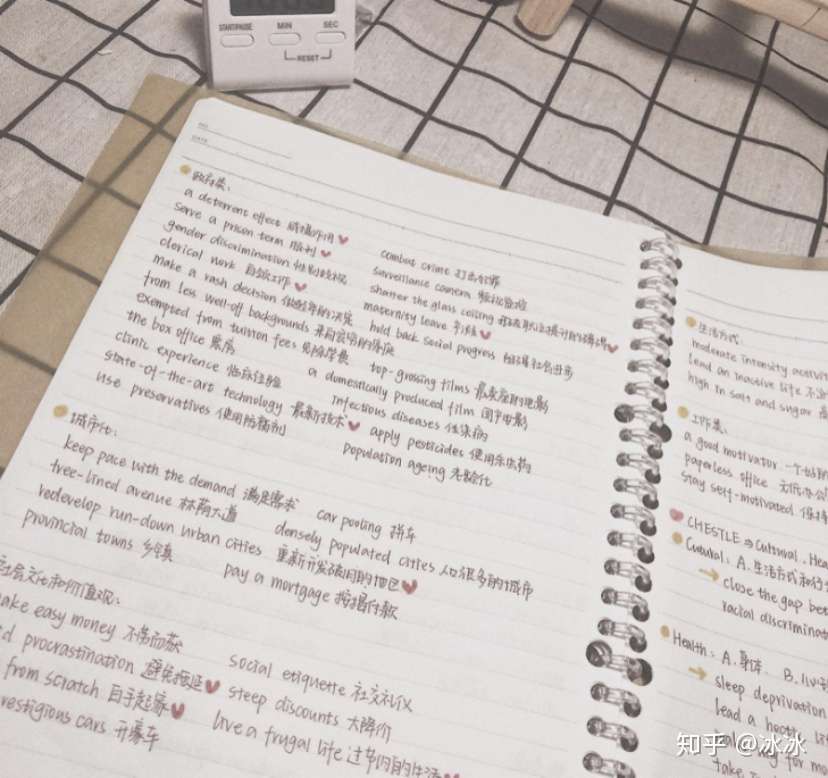 START/PAUSE MIN SEC
RESET
NO.
DATE
政府类:
a deterrent effect 威慑作用
serve a prison term 服刑
gender discrimination 性别歧视
clerical work 文书工作
make a rash decision 做轻率的决定
from less well-off backgrounds 来自贫穷的家庭
exempted from tuition fees 免除学费
the box office 票房
clinic experience 临床经验
state-of-the-art technology 最新技术
use preservatives 使用防腐剂
combat crime 打击犯罪
surveillance camera 监控
shatter the glass ceiling 打破职业提升的障碍
maternity leave 产假
hold back social progress 阻碍社会进步
top-grossing films 最卖座的电影
a domestically produced film 国产电影
infectious diseases 传染病
apply pesticides 使用杀虫药
population ageing 老龄化
城市化:
keep pace with the demand 满足需求
tree-lined avenue 林荫大道
redevelop run-down urban cities 重新开发破旧的地区
provincial towns 乡镇
car pooling 拼车
densely populated cities 人口很多的城市
pay a mortgage 按揭付款
社会文化和价值观:
make easy money 不劳而获
procrastination 避免拖延
from scratch 白手起家
prestigious cars 开豪车
social etiquette 社交礼仪
steep discounts 大降价
live a frugal life 过节俭的生活
生活方式:
moderate intensity activit
lead an inactive life 不
high in salt and sugar 高
工作类:
a good motivator 一个好的
paperless office 无纸办公
stay self-motivated 保持
CHESTLE ⇒ Cultural, Hea
Cultural: A. 生活方式和行
→ close the gap be
racial discriminat
Health: A. 身体 B. 心
→ sleep deprivation
lead a hectic li
知乎 @冰冰